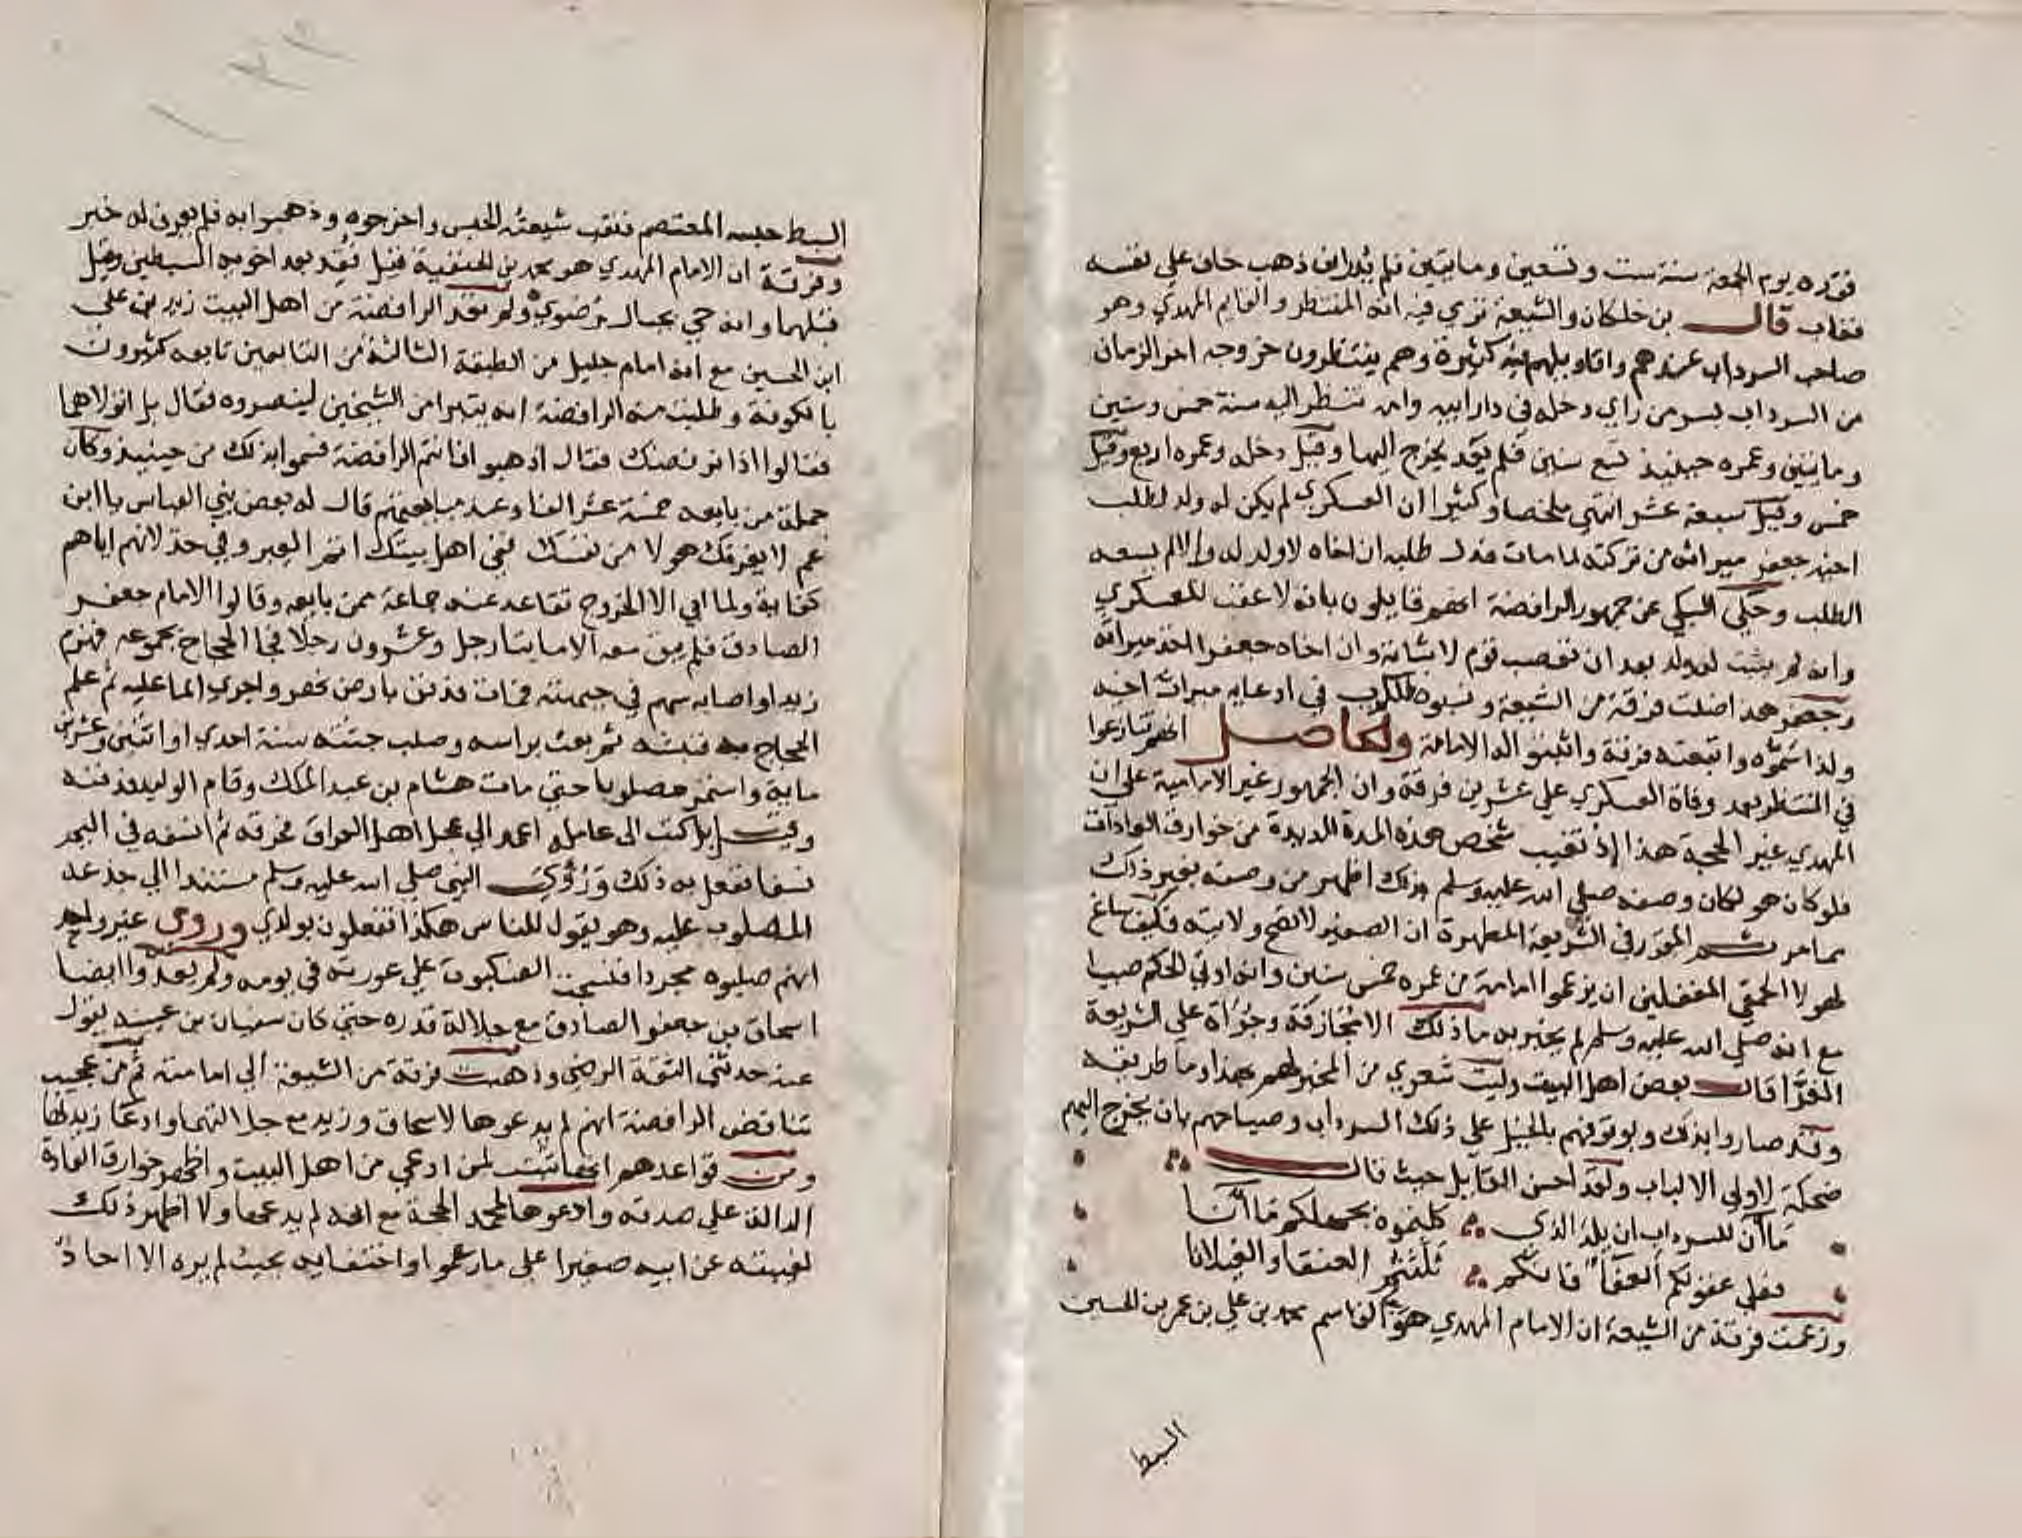 فقده يوم الجمعة سنة ست وتسعين ومايتين فلم يدر اين ذهب خاف علي نفسه
فغاب قال بن خلكان والشيعة تري فيه انه المنتظر والقايم المهدي وهو
صاحب السرداب عندهم واقاويلهم فيه كثيرة وهم ينتظرون خروجه اخر الزمان
من السرداب بسر من راي دخله في دار ابيه وامه تنتظر اليه سنة خمس وستين
ومايتين وعمره حينيذ تسع سنين فلم يعد يخرج اليها وقيل دخله وعمره اربع وقيل
خمس وقيل سبعة عشر انتهي ملخصا وكثيرا ان العسكري لم يكن له ولد لطلب
اخيه جعفر ميراثه من تركته لما مات فدل طلبه ان اخاه لا ولد له والا لم يسعه
الطلب وحكي السبكي عن جمهور الرافضة انهم قايلون بانه لا عقب للعسكري
وانه لم يثبت له ولد بعد ان تعصب قوم لاثباته وان اخاه جعفر اخذ ميراثه
وجعفر هذا ضللت فرقة من الشيعة ونسبوه للكذب في ادعايه ميراث اخيه
ولذا سموه واتبعته فرقة واثبتوا له الامامة والحاصل انهم تنازعوا
في المنتظر بعد وفاة العسكري علي عشرين فرقة وان الجمهور غير الامامية علي ان
المهدي غير الحجة هذا اذ تغيب شخص هذه المدة المديدة من خوارق العادات
فلو كان هو لكان وصفه صلي الله عليه وسلم بذلك اظهر من وصفه بغير ذلك
مما مر ثم المقرر في الشريعة المطهرة ان الصغير لا تصح ولايته فكيف ساغ
لهولا الحمقي المغفلين ان يزعموا امامة من عمره خمس سنين وانه اوتي الحكم صبيا
مع انه صلي الله عليه وسلم لم يخبر به ما ذلك الا مجازفة وجرأة علي الشريعة
الغرا قال بعض اهل البيت وليت شعري من المخبر لهم بهذا وما طريقه
وقد صاروا بذلك وبوقوفهم بالخيل علي ذلك السرداب وصياحهم بان يخرج اليهم
ضحكة لاولي الالباب ولقد احسن القايل حيث قال
ما آن للسرداب ان يلد الذي كلمتموه بجهلكم ما آنا
فعلي عقولكم العفاء فانكم ثلثتم العنقا والغيلانا
وزعمت فرقة من الشيعة ان الامام المهدي هو ابو القاسم محمد بن علي بن عمر بن الحسين
السبط
السبط حبسه المعتصم فنقب شيعته الحبس واخرجوه وذهبوا به فلم يعرف له خبر
وفرقة ان الامام المهدي هو محمد بن الحنفية قيل فقد بعد اخويه السبطين وقيل
قبلهما وانه حي بجبال رضوي ولم تعد الرافضة من اهل البيت زيد بن علي
ابن الحسين مع انه امام جليل من الطبقة الثالثة من التابعين تابعه كثيرون
بالكوفة وطلبت منه الرافضة انه يتبرا من الشيخين لينصروه فقال بل اتولاهما
فقالوا اذا نرفضك فقال اذهبوا فانتم الرافضة فسموا بذلك من حينيذ وكان
جملة من بايعه خمسة عشر الفا وعند مبايعتهم قال له بعض بني العباس يا ابن
عم لا يغرنك هولا من نفسك ففي اهل بيتك اتم العبر وفي خذلانهم اياهم
كفاية ولما ابي الا الخروج تقاعد عنه جماعة ممن بايعه وقالوا الامام جعفر
الصادق فلم يبق معه الا مايتا رجل وعشرون رجلا فجا الحجاج بجموعه فهزم
زيدا واصابه سهم في جبهته فمات فدفن بارض نهر واجري الما عليه ثم علم
الحجاج به فنبشه ثم بعث براسه وصلب جثته سنة احدي او اثنتين وعشرين
ماية واستمر مصلوبا حتي مات هشام بن عبد الملك وقام الوليد فدفنه
وقيل بل كتب الي عامله اعمد الي عجل اهل العراق فحرقه ثم انسفه في اليم
نسفا ففعل به ذلك ورؤي النبي صلي الله عليه وسلم مستندا الي جذعه
المصلوب عليه وهو يقول للناس هكذا تفعلون بولدي وروي غير واحد
انهم صلبوه مجردا فنسجت العنكبوت علي عورته في يومه ولم يعدوا ايضا
اسحاق بن جعفر الصادق مع جلالة قدره حتي كان سفيان بن عيينه يقول
عنه حدثني الثقة الرضي وذهبت فرقة من الشيعة الي امامته ثم من عجيب
تناقض الرافضة انهم لم يدعوها لاسحاق وزيد مع جلالتهما وادعا زيد لها
ومن قواعدهم انها تثبت لمن ادعي من اهل البيت واظهر خوارق العادة
الدالة علي صدقه وادعوها لمحمد الحجة مع انه لم يدعها ولا اظهر ذلك
لغيبته عن ابيه صغيرا علي ما زعموا واختفايه بحيث لم يره الا احاد